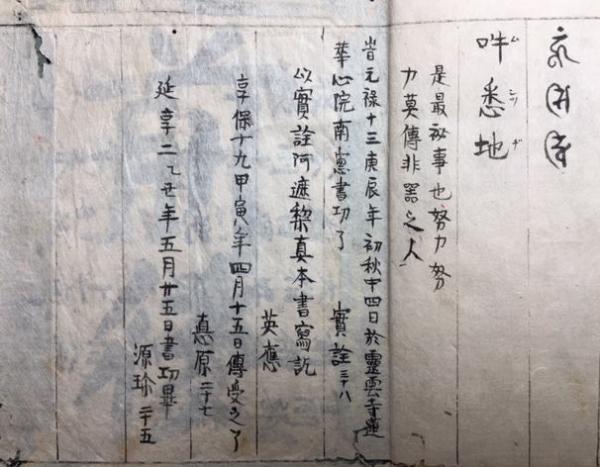 吽悉地
是最秘事也努力努
力莫傳非器之人
旹元禄十三庚辰年初秋中四日於靈雲寺蓮
華心院南窓書功了 實詮三十八
以實詮阿遮黎真本書寫訖
英應
享保十九甲寅年四月十五日傳受之了
惠原二十七
延享二乙丑年五月廿五日書功畢
源珍二十五